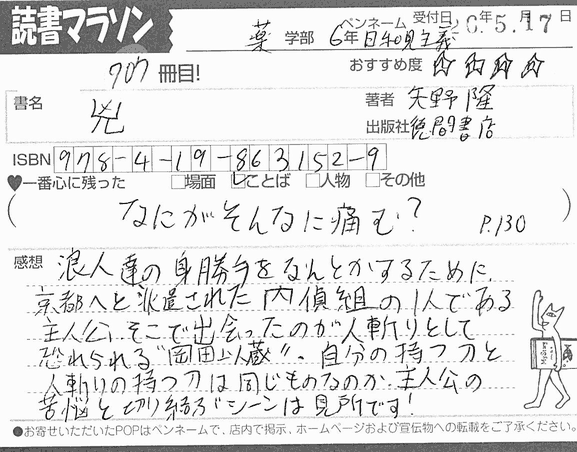 読書マラソン
薬 学部 6年 ペンネーム 日和見主義 受付日 6年5.17日
907 冊目!
おすすめ度 ☆☆☆☆
書名 兇
著者 矢野 隆
出版社 徳間書店
ISBN 978-4-19-863152-9
♥一番心に残った □場面 ☑ことば □人物 □その他
(なにがそんなに痛む? P.130)
感想 浪人達の身勝手をなんとかするために、
京都へと派遣された内偵組の1人である
主人公、そこで出会ったのが人斬りとして
恐れられる"岡田以蔵"。自分の持つ刀と
人斬りの持つ刀は同じものなのか、主人公の
苦悩と切り結ぶシーンは見所です!
●お寄せいただいたPOPはペンネームで、店内で掲示、ホームページおよび宣伝物への転載をご了承ください。